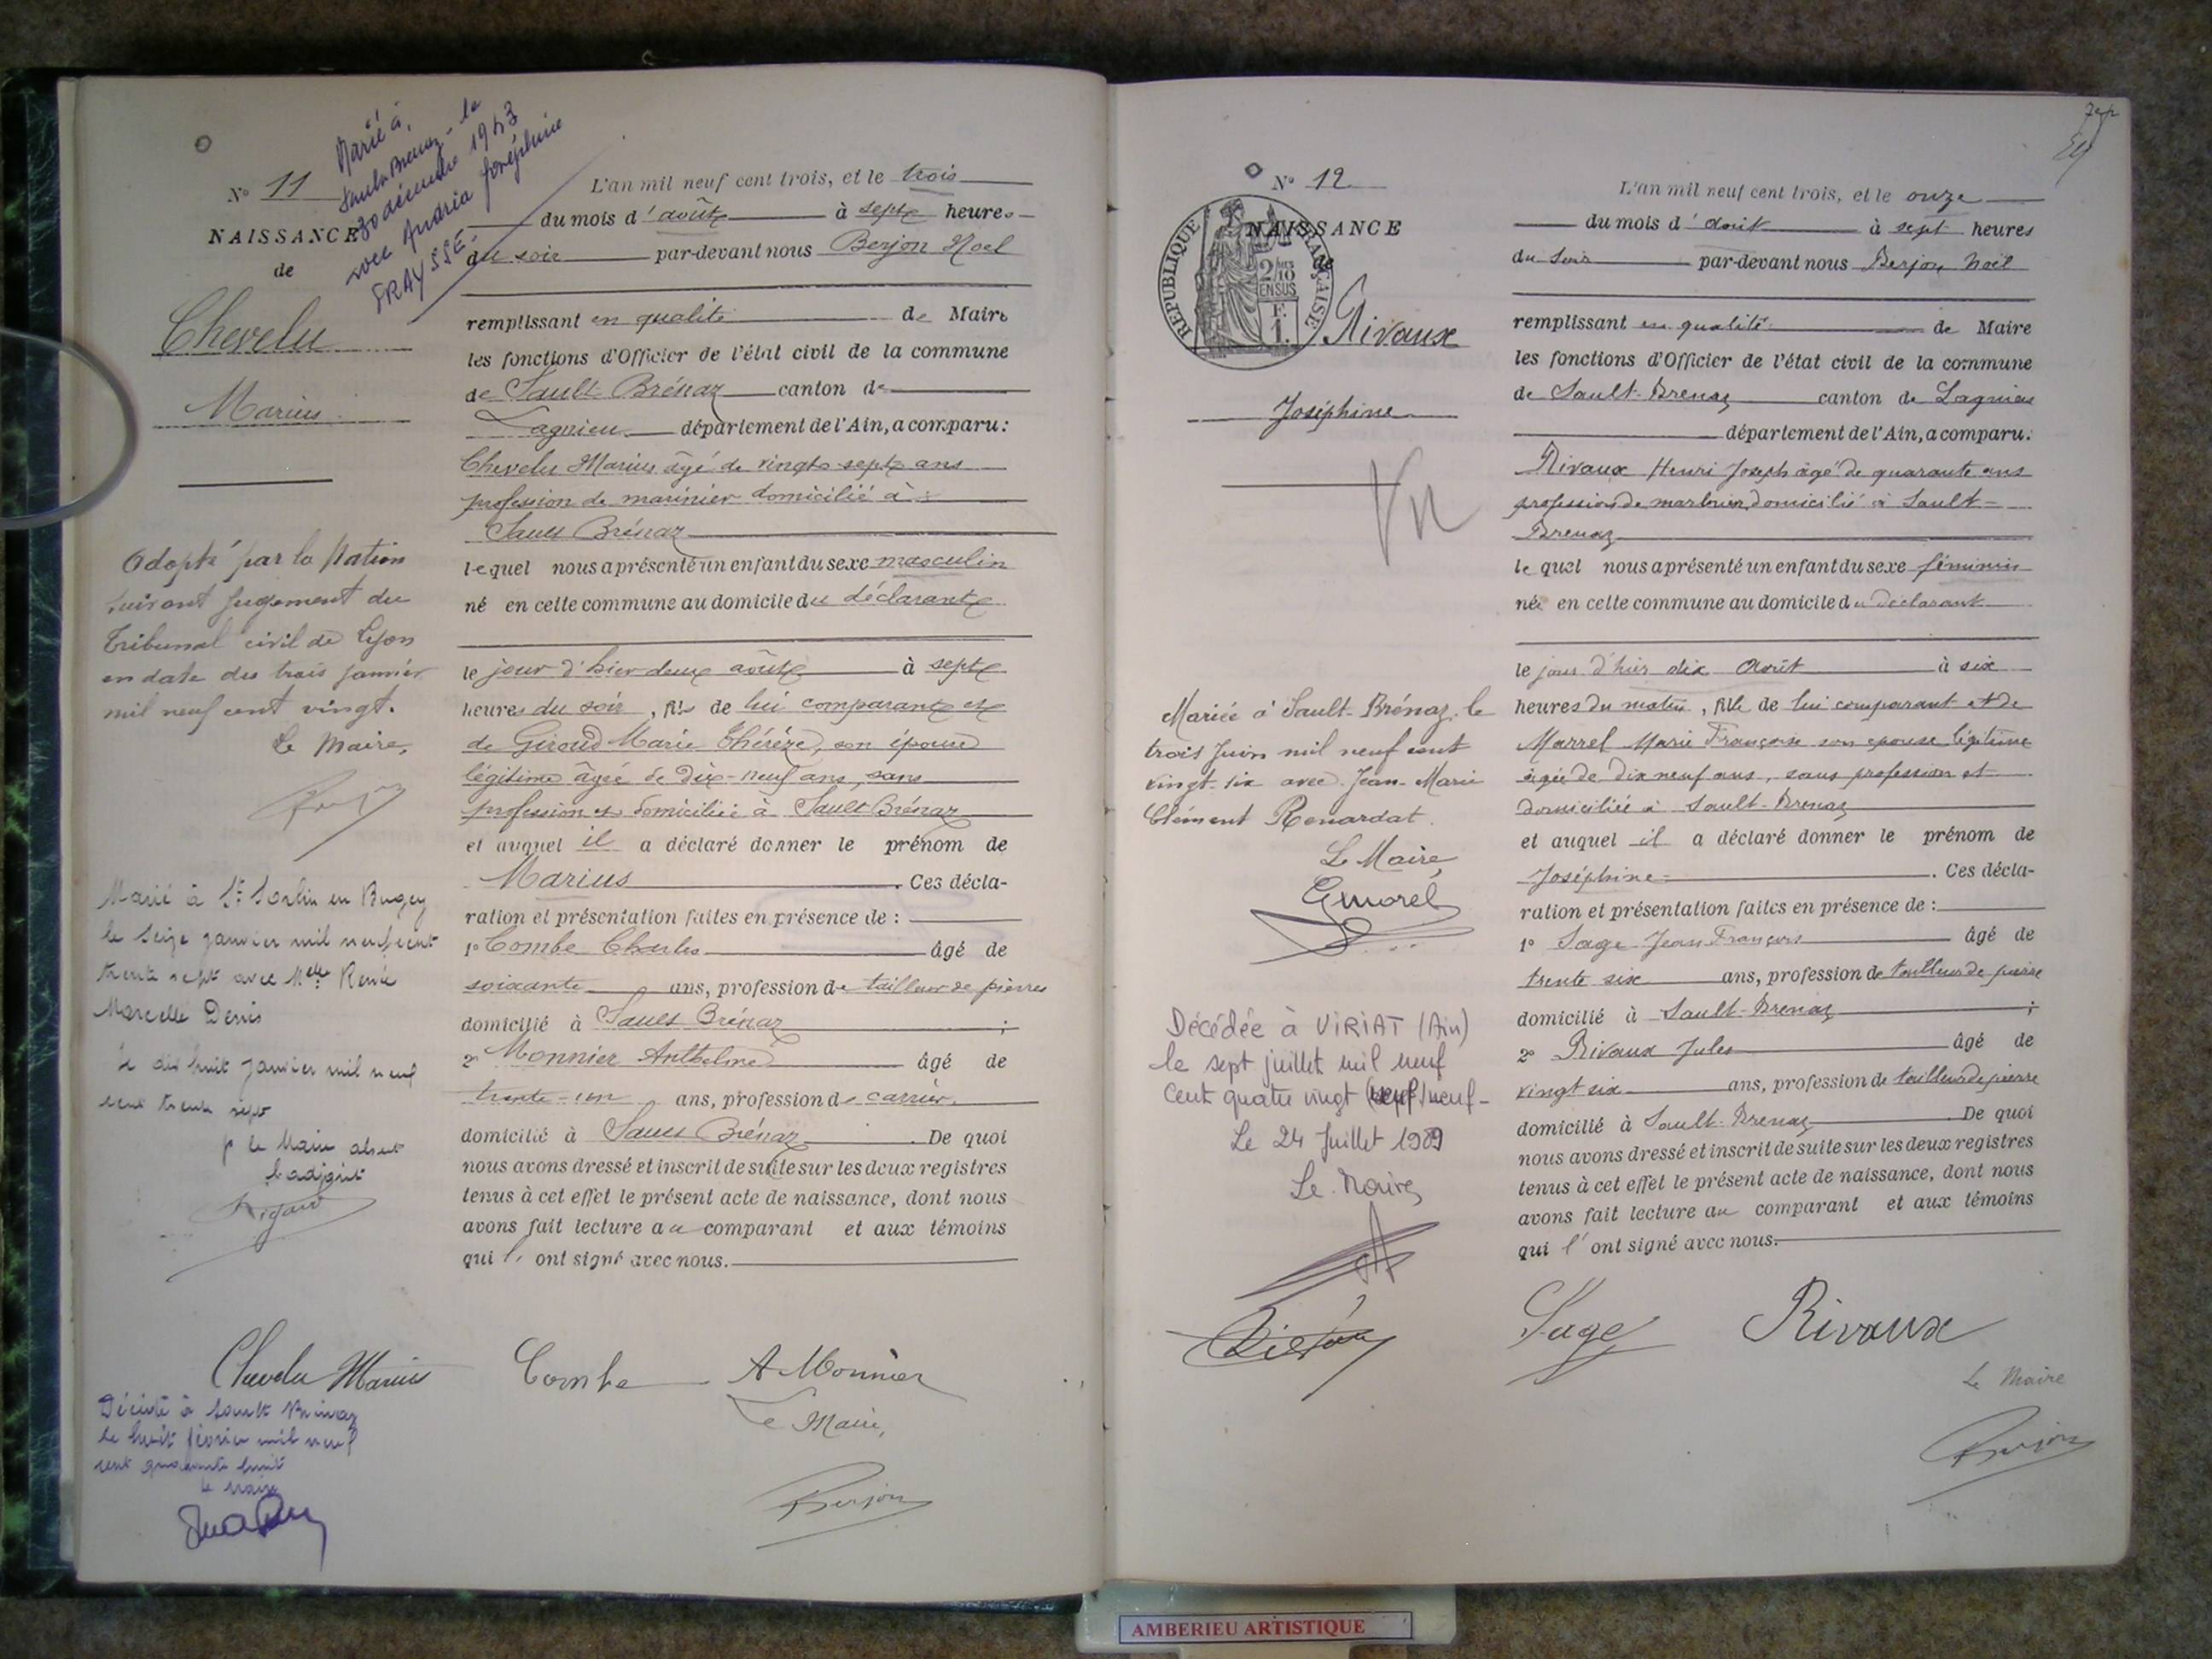 N° 11
NAISSANCE
de
Chevelu
Marius
Marié à
Sault Brenaz - le
30 décembre 1943
avec Andria Joséphine
FRAYSSE.
Adopté par la Nation
suivant jugement du
Tribunal civil de Lyon
en date du trois janvier
mil neuf cent vingt.
Le Maire,
Marié à St Sorlin en Bugey
le seize janvier mil neuf cent
trente sept avec Melle Renée
Marcelle Denis
le dix huit janvier mil neuf
cent trente sept
p le Maire absent
l'adjoint
Rigaud
L'an mil neuf cent trois, et le trois
du mois d'août à sept heures
du soir par-devant nous Berjon Noel
remplissant en qualité de Maire
les fonctions d'Officier de l'état civil de la commune
de Sault-Brénaz canton de
Lagnieu département de l'Ain, a comparu:
Chevelu Marius âgé de vingt-sept ans
profession de marinier domicilié à
Sault Brénaz
lequel nous a présenté un enfant du sexe masculin
né en cette commune au domicile du déclarant
le jour d'hier deux août à sept
heures du soir, fils de lui comparant et
de Giroud Marie Thérèze, son épouse
légitime âgée de dix-neuf ans, sans
profession et domiciliée à Sault Brénaz
et auquel il a déclaré donner le prénom de
Marius. Ces décla-
ration et présentation faites en présence de :
1° Combe Charles âgé de
soixante ans, profession de tailleur de pierres
domicilié à Sault Brénaz ;
2° Monnier Anthelme âgé de
trente-un ans, profession de carrier
domicilié à Sault Brénaz. De quoi
nous avons dressé et inscrit de suite sur les deux registres
tenus à cet effet le présent acte de naissance, dont nous
avons fait lecture au comparant et aux témoins
qui l'ont signé avec nous.
Chevelu Marius Combe A Monnier
Le Maire,
Berjon
Décédé à Sault Brénaz
le huit février mil neuf
cent quarante huit
le maire
N° 12
NAISSANCE
de
REPUBLIQUE FRANÇAISE
2/10
EN SUS
F.
1.
Rivaux
Joséphine
Vu
Mariée à Sault-Brénaz, le
trois Juin mil neuf cent
vingt-six avec Jean-Marie
Clément Renardat.
Le Maire,
Gmorel
Décédée à VIRIAT (Ain)
le sept juillet mil neuf
cent quatre vingt (neuf) neuf-
Le 24 Juillet 1989
Le Maire,
L'an mil neuf cent trois, et le onze
du mois d'août à sept heures
du soir par-devant nous Berjon Noël
remplissant en qualité de Maire
les fonctions d'Officier de l'état civil de la commune
de Sault-Brenaz canton de Lagnieu
département de l'Ain, a comparu:
Rivaux Henri Joseph âgé de quarante ans
profession de marbrier, domicilié à Sault-
Brenaz
lequel nous a présenté un enfant du sexe féminin
née en cette commune au domicile du déclarant
le jour d'hier dix Août à six
heures du matin, fille de lui comparant et de
Marrel Marie Françoise son épouse légitime
âgée de dix neuf ans, sans profession et
domiciliée à Sault-Brenaz
et auquel il a déclaré donner le prénom de
Joséphine. Ces décla-
ration et présentation faites en présence de :
1° Sage Jean François âgé de
trente six ans, profession de tailleur de pierre
domicilié à Sault-Brenaz ;
2° Rivaux Jules âgé de
vingt six ans, profession de tailleur de pierre
domicilié à Sault-Brenaz De quoi
nous avons dressé et inscrit de suite sur les deux registres
tenus à cet effet le présent acte de naissance, dont nous
avons fait lecture au comparant et aux témoins
qui l'ont signé avec nous.
Sage Rivaux
Le Maire
Berjon
AMBERIEU ARTISTIQUE